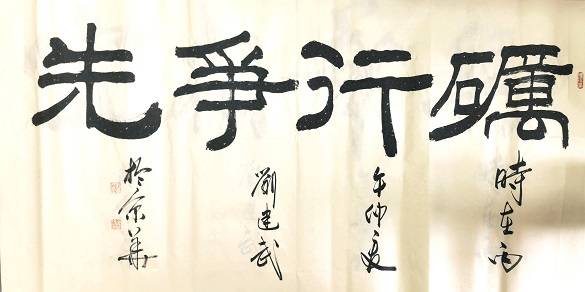 礪行爭先
時在丙
午仲夏
劉建武
於京華